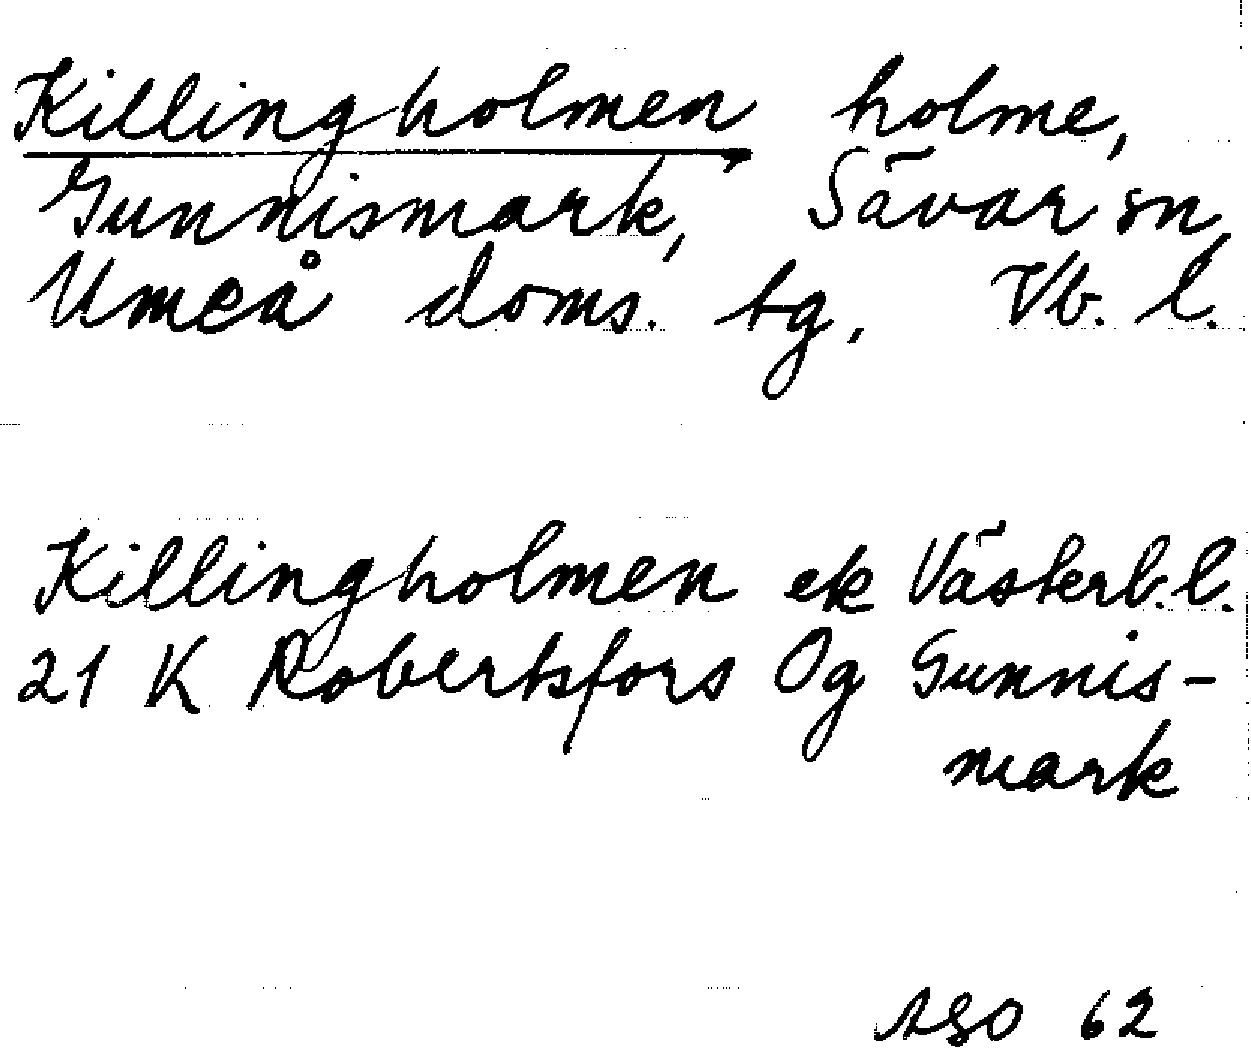 Killingholmen holme,
Gunnismark, Sävar sn,
Umeå doms. tg, Vb. l.
Killingholmen ek Västerb. l.
21 K Robertsfors Og Gunnis-
mark
ASO 62